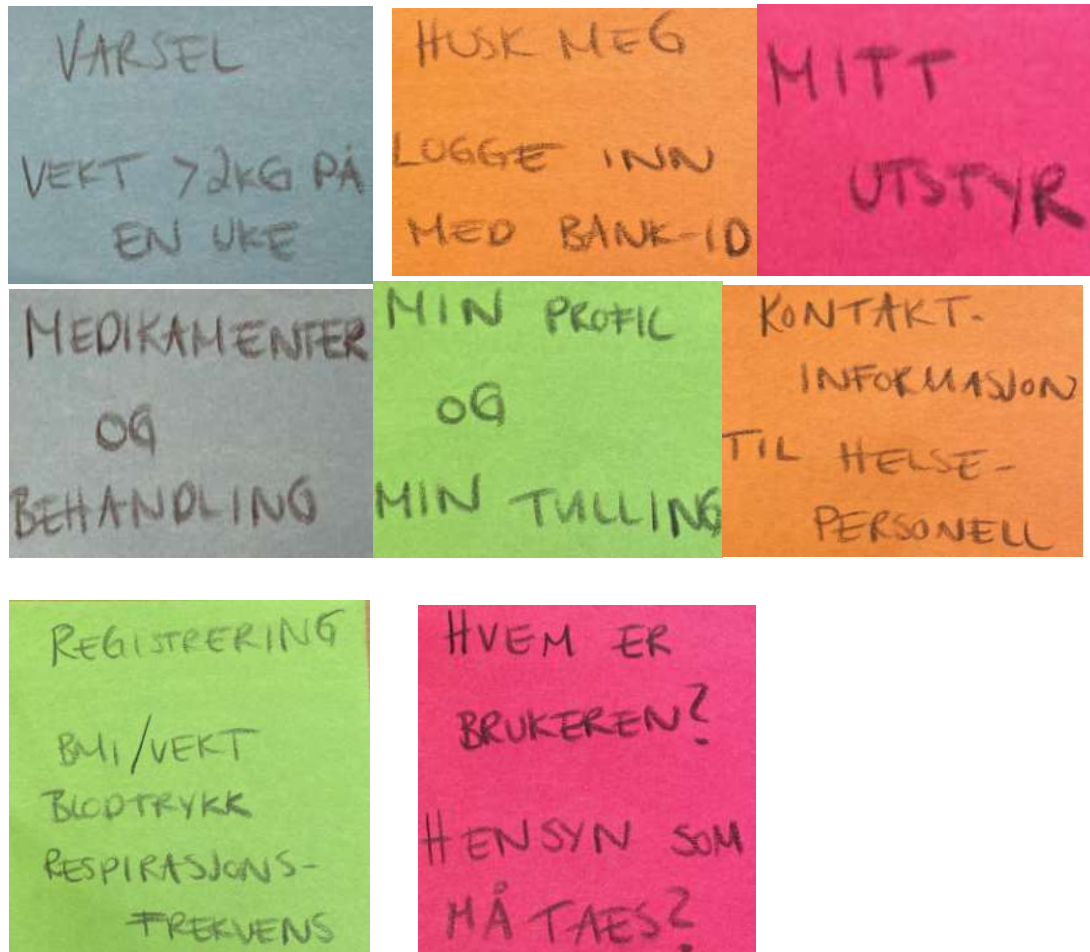 VARSEL
VEKT >2KG PÅ
EN UKE
HUSK MEG
LOGGE INN
MED BANK-ID
MITT
UTSTYR
MEDIKAMENTER
OG
BEHANDLING
MIN PROFIL
OG
MIN TVILLING
KONTAKT-
INFORMASJON
TIL HELSE-
PERSONELL
REGISTRERING
BMI/VEKT
BLODTRYKK
RESPIRASJONS-
FREKVENS
HVEM ER
BRUKEREN?
HENSYN SOM
MÅ TAES?